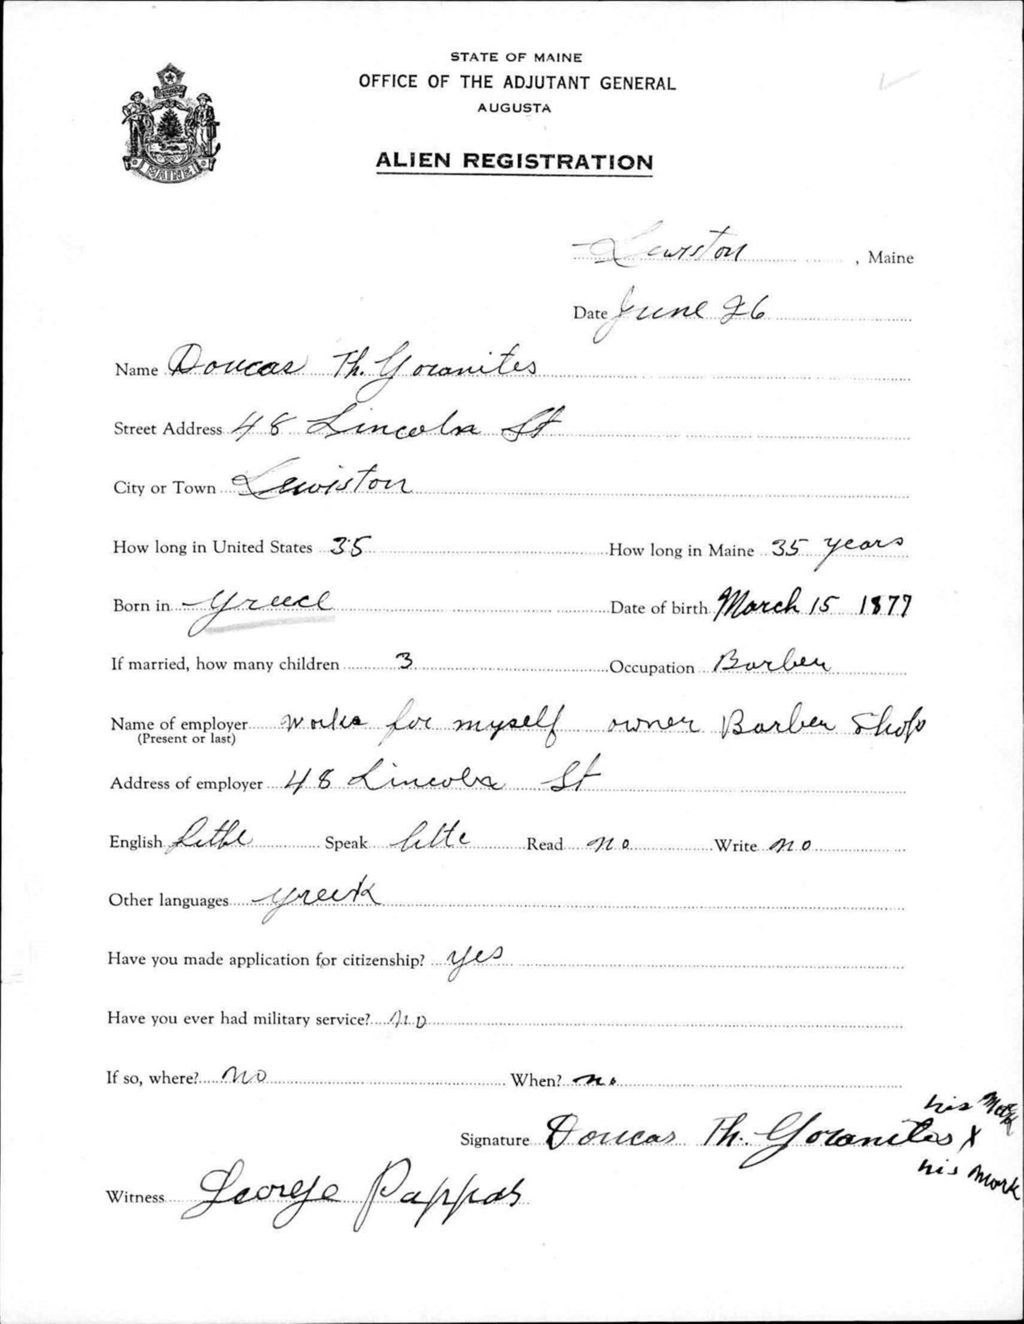 STATE OF MAINE
OFFICE OF THE ADJUTANT GENERAL
AUGUSTA
ALIEN REGISTRATION
MAINE
Lewiston, Maine
Date June 26
Name Doucas Th. Goranites
Street Address 48 Lincoln St
City or Town Lewiston
How long in United States 35 How long in Maine 35 years
Born in Greece Date of birth March 15 1877
If married, how many children 3 Occupation Barber
Name of employer works for myself owner Barber Shop
(Present or last)
Address of employer 48 Lincoln St
English Little Speak little Read no Write no
Other languages Greek
Have you made application for citizenship? yes
Have you ever had military service? no
If so, where? no When? no
his Mark
Signature Doucas Th. Goranites X
his mark
Witness George Pappas